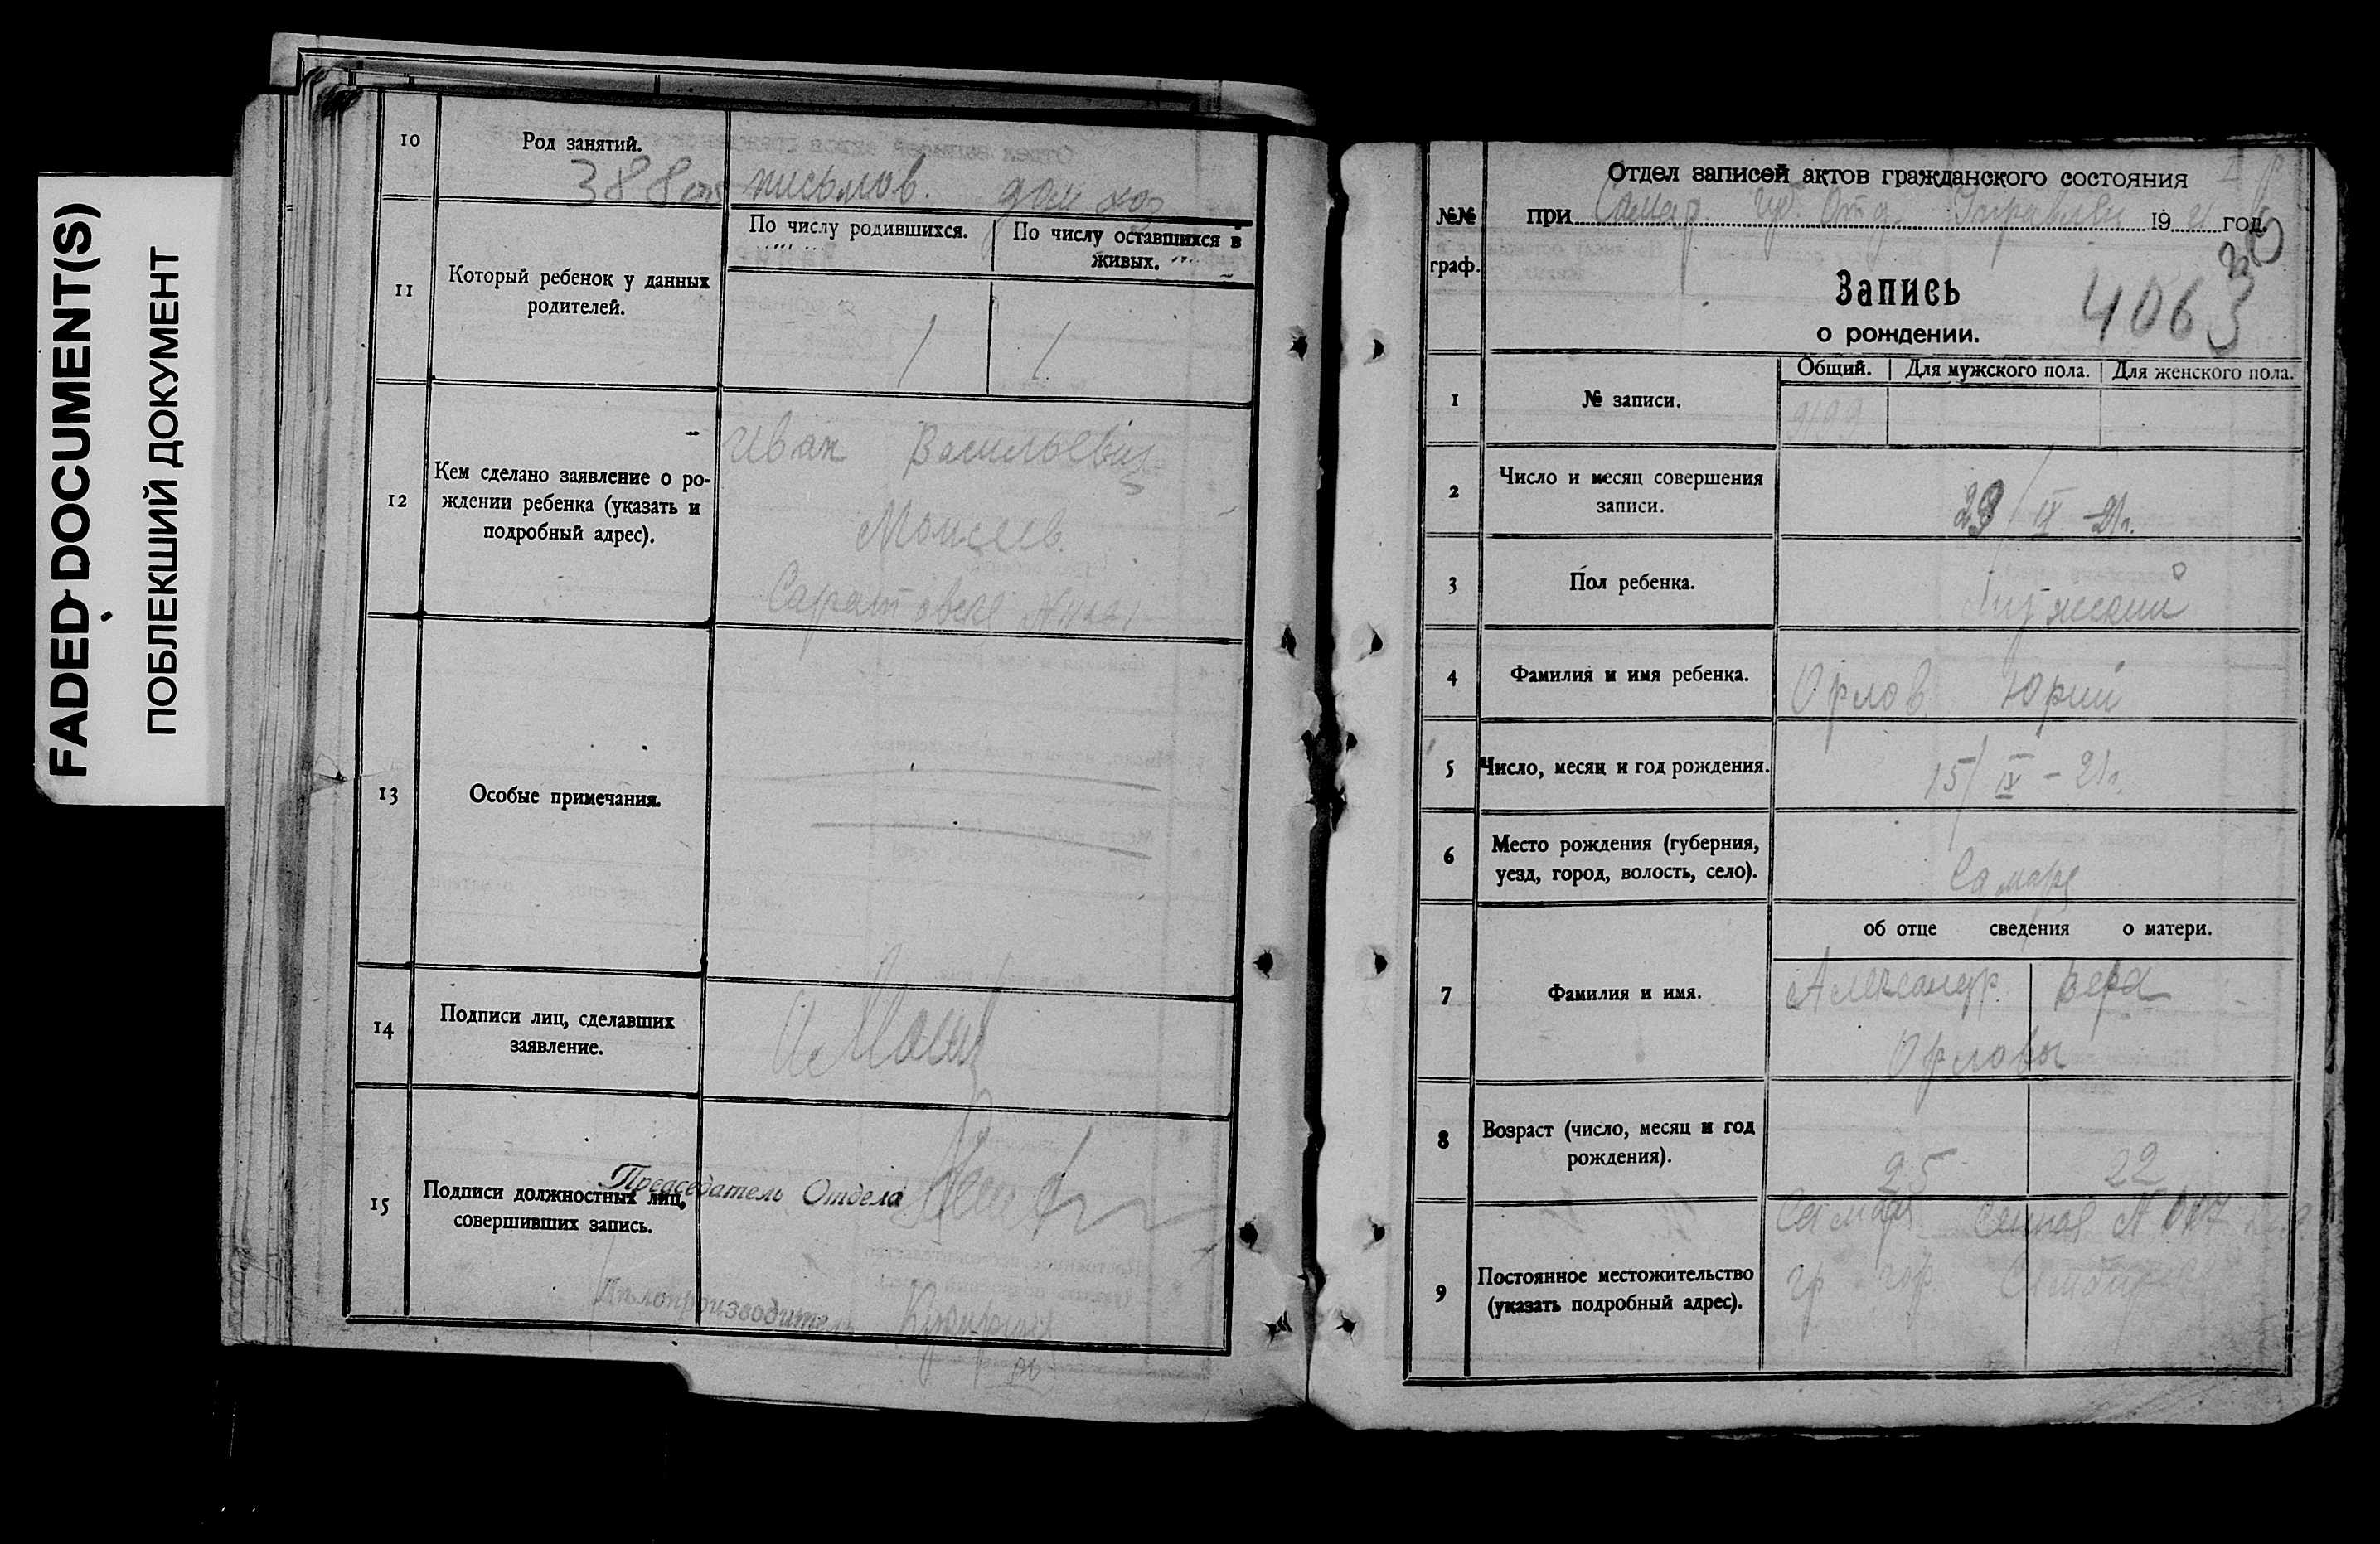 FADED DOCUMENT(S)
ПОБЛЕКШИЙ ДОКУМЕНТ
10
Род занятий.
388 письмов. дом хоз
11
Который ребенок у данных
родителей.
По числу родившихся.
По числу оставшихся в
живых.
1
1
12
Кем сделано заявление о ро-
ждении ребенка (указать и
подробный адрес).
Иван Васильевич
Моисеев.
Саратовск
13
Особые примечания.
14
Подписи лиц, сделавших
заявление.
15
Подписи должностных лиц,
совершивших запись.
Председатель Отдела
Делопроизводитель
№№
граф.
Отдел записей актов гражданского состояния
при Самар. губ. Отд Управлен 1921 год.
30
Запись
о рождении.
4063
1
№ записи.
Общий.
Для мужского пола.
Для женского пола.
2
Число и месяц совершения
записи.
29/IX-21г.
3
Пол ребенка.
Мужской
4
Фамилия и имя ребенка.
Орлов Юрий
5
Число, месяц и год рождения.
15/IX-21г.
6
Место рождения (губерния,
уезд, город, волость, село).
Самара
об отце сведения о матери.
7
Фамилия и имя.
Александр
Вера
Орловы
8
Возраст (число, месяц и год
рождения).
25
22
9
Постоянное местожительство
(указать подробный адрес).
Самара Сенная №
гр гор